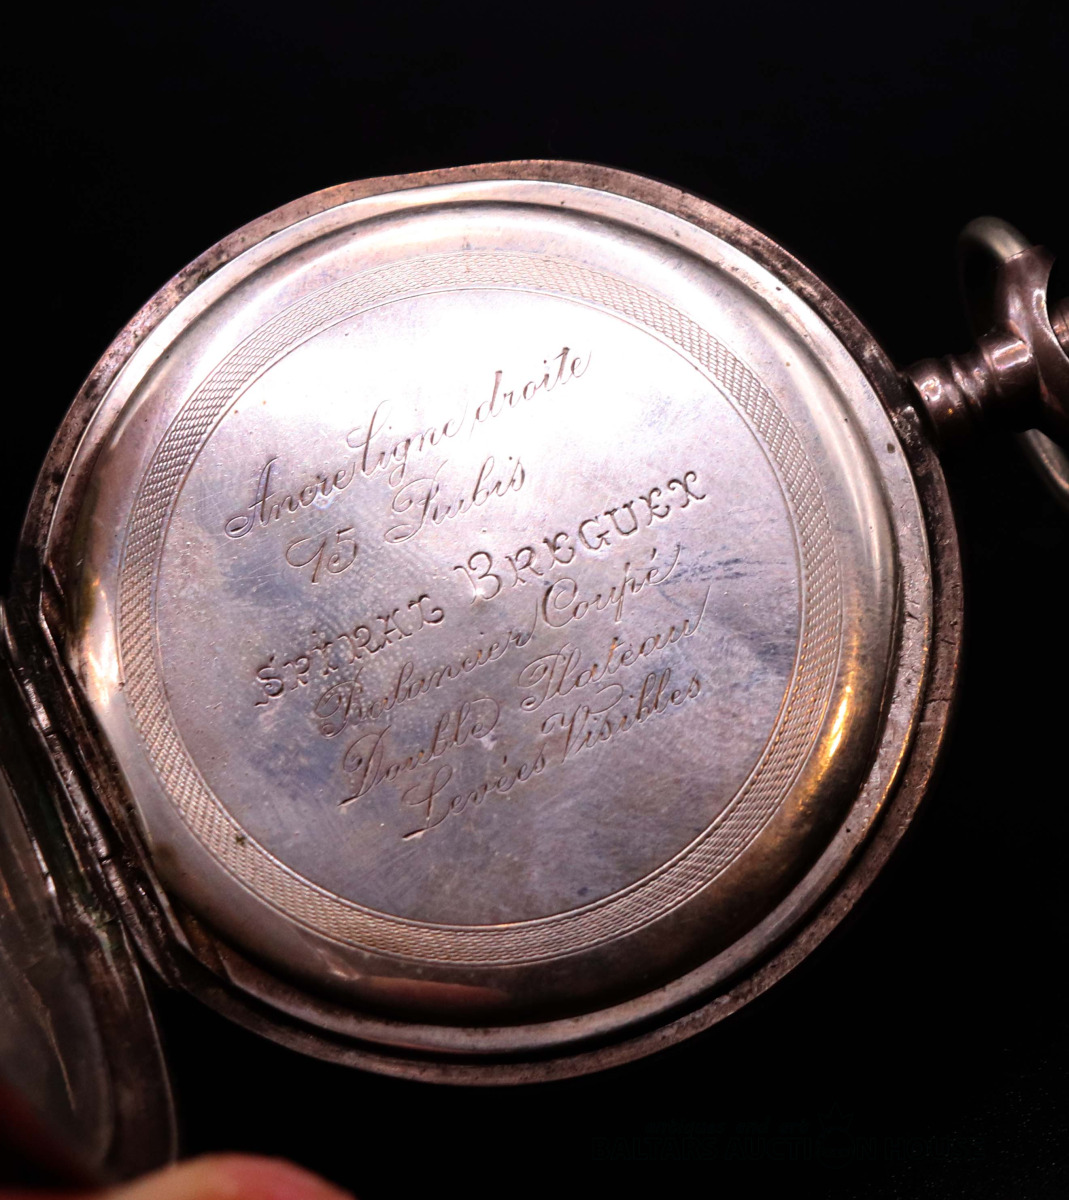 Ancre ligne droite
15 Rubis
SPIRAL BREGUEX
Balancier Coupé
Double Plateau
Levées Visibles
BALTIC AUCTION HOUSE